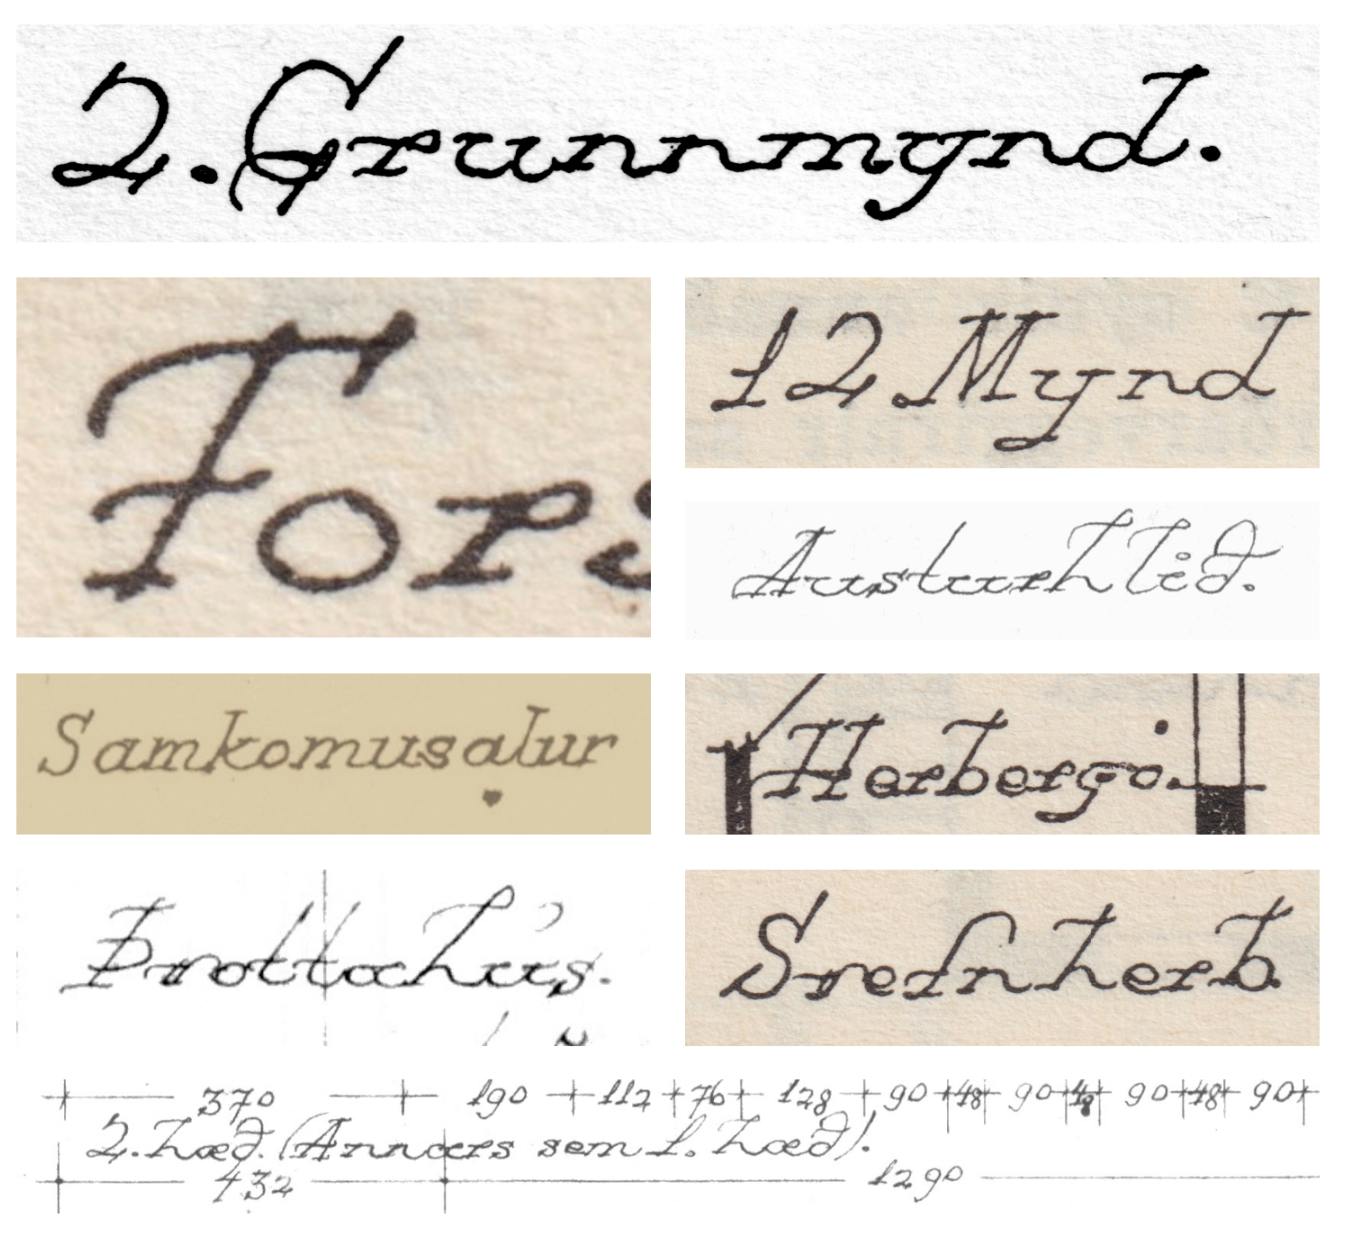 2. Grunnmynd.
Fors
12. Mynd
Austurhlið.
Samkomusalur
Herbergi.
Þvottahús.
Svefnherb.
370 190 112 76 128 90 48 90 48 90 48 90
2. hæð. (Annars sem 1. hæð).
432 1290